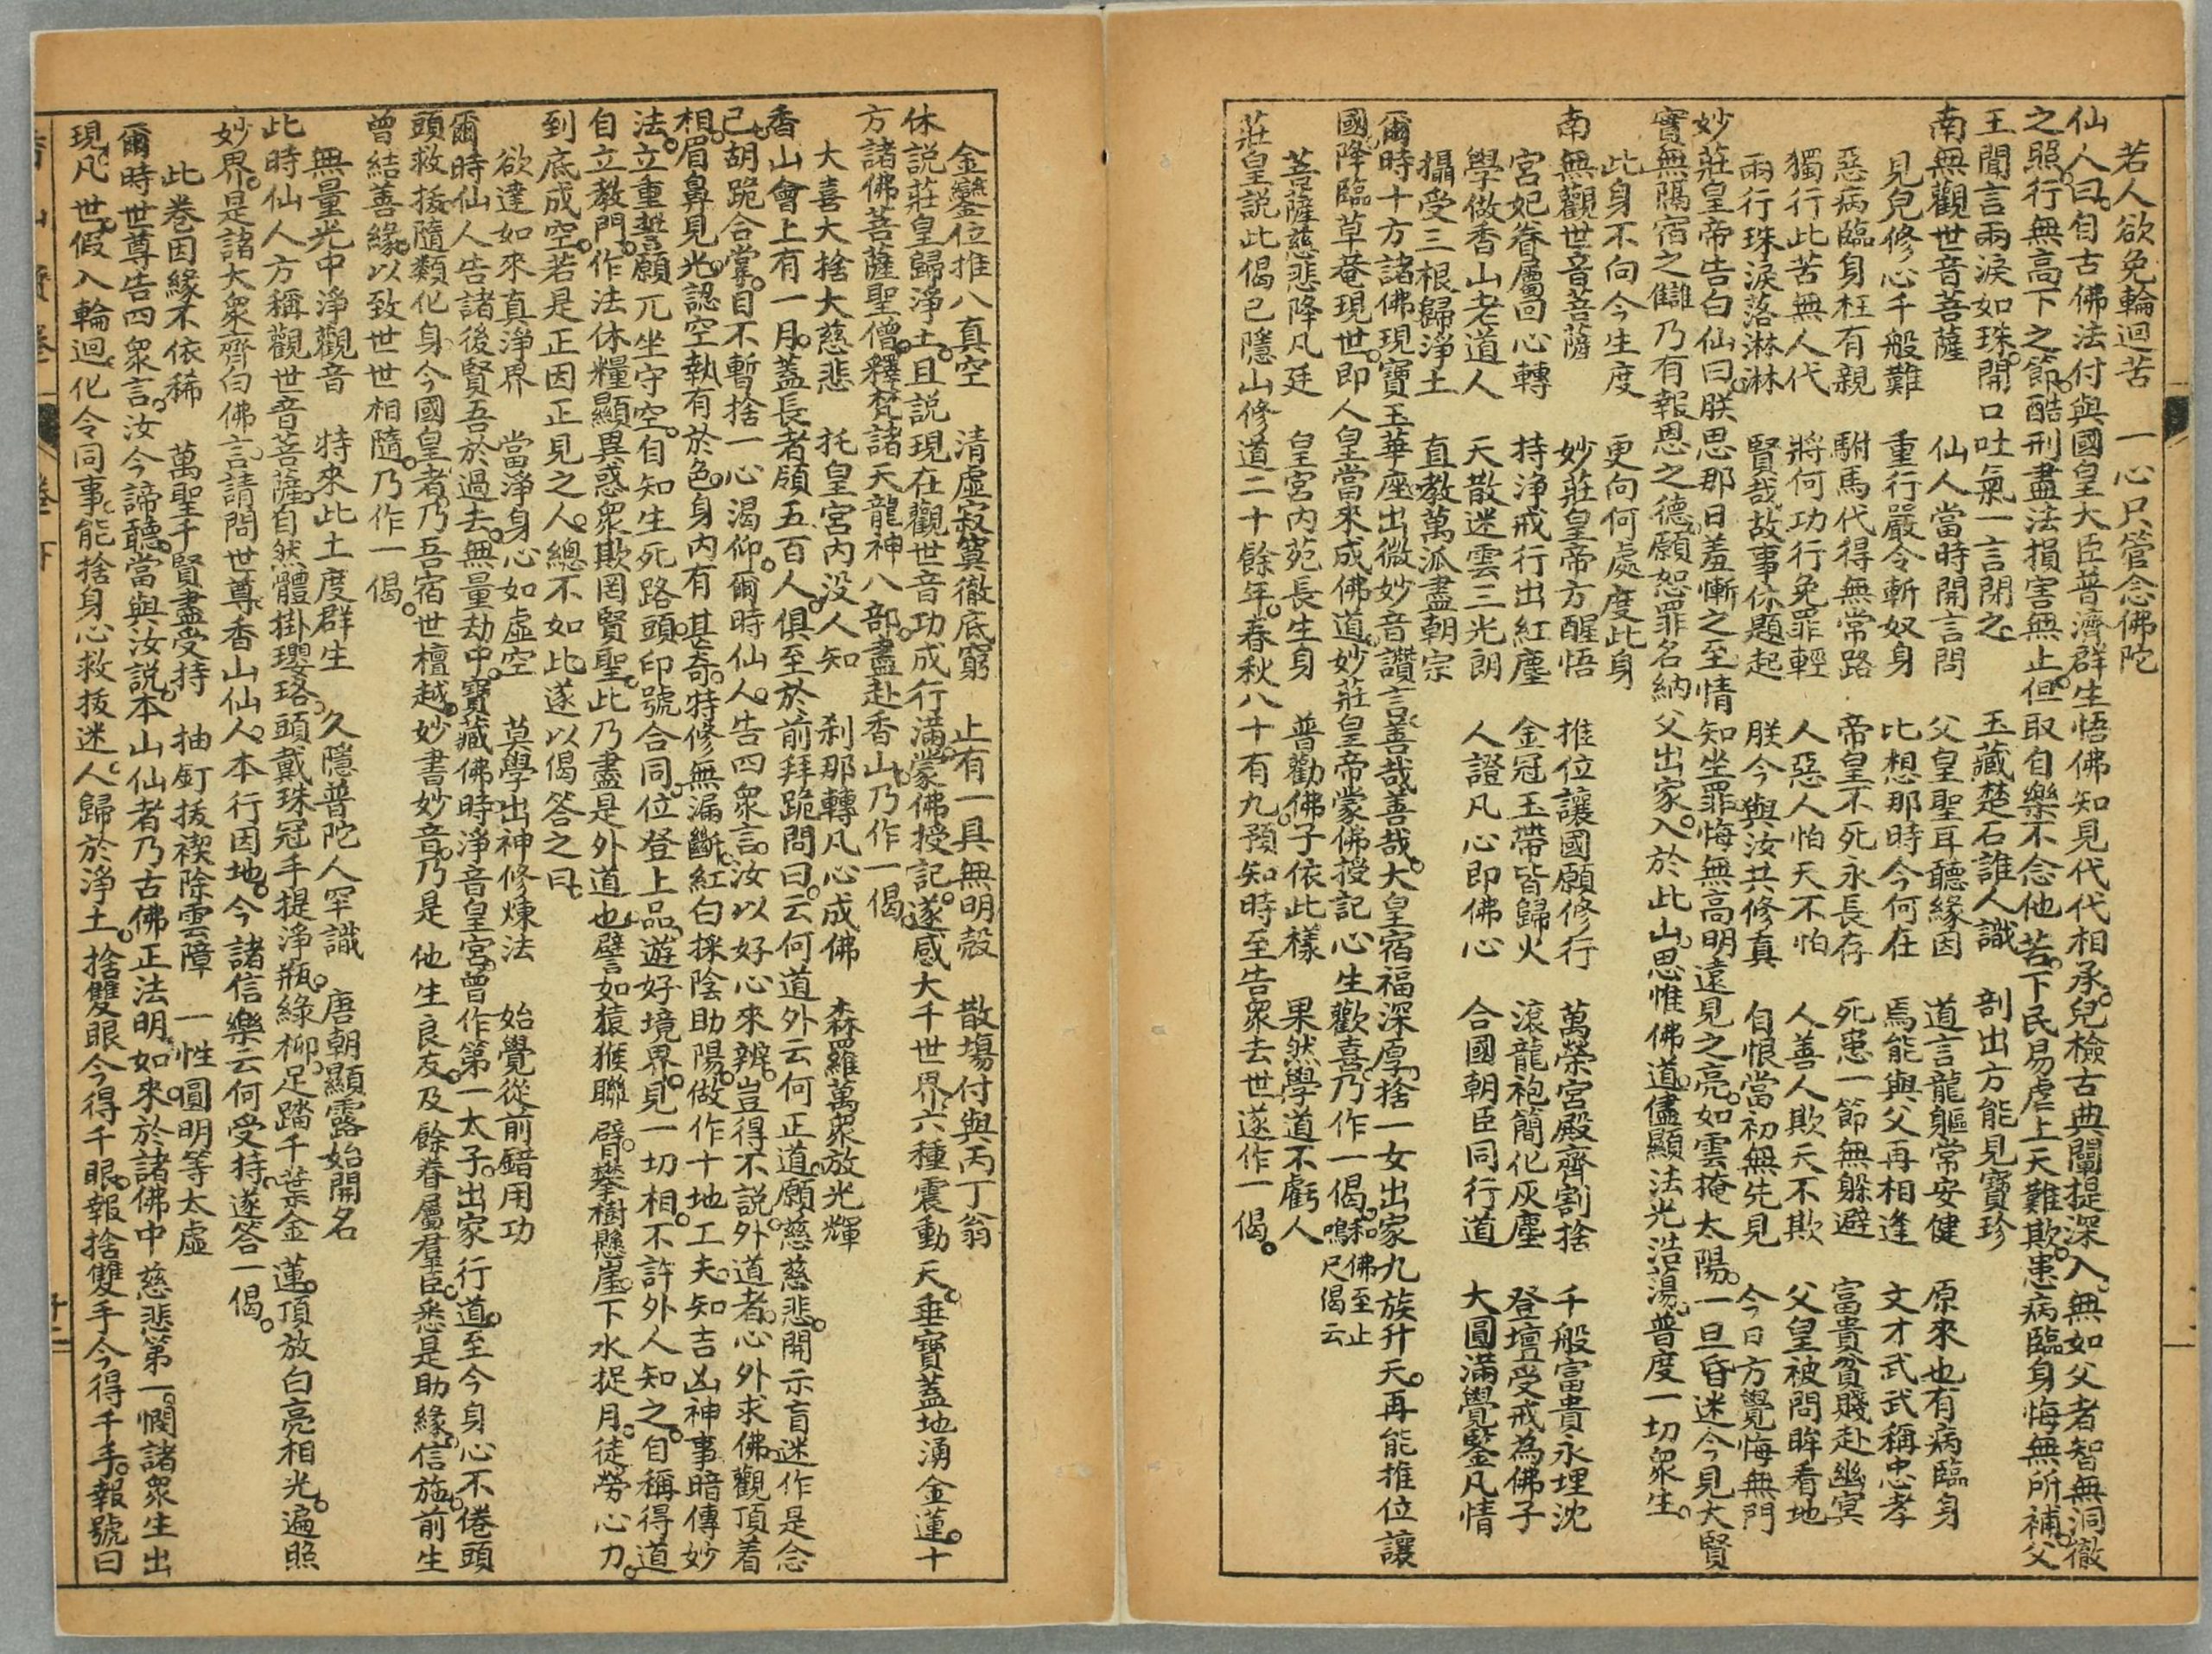 若人欲免輪迴苦　一心只管念佛陀
仙人曰。自古佛法付與國皇大臣普濟群生悟佛知見代代相承。兒檢古典闡提深入。無如父者智無洞徹
之照。行無高下之節。酷刑盡法損害無止。但取自樂不念他苦。下民易虐上天難欺。患病臨身悔無所補。父
王聞言兩淚如珠。開口吐氣一言閉之　玉藏楚石誰人識　剖出方能見寶珍
南無觀世音菩薩　仙人當時開言問　父皇聖耳聽緣因　道言龍軀常安健　原來也有病臨身
見兒修心千般難　重行嚴令斬奴身　比想那時今何在　焉能與父再相逢　文才武武稱忠孝
惡病臨身枉有親　駙馬代得無常路　帝皇不死永長存　死患一節無躲避　富貴貧賤赴幽冥
獨行此苦無人代　將何功行免罪輕　人惡人怕天不怕　人善人欺天不欺　父皇被問眸看地
兩行珠淚落淋淋　賢哉故事休題起　朕今與汝共修真　自恨當初無先見　今日方覺悔無門
妙莊皇帝告白仙曰。朕思那日羞慚之至情知坐罪悔無高明遠見之亮。如雲掩太陽。一旦昏迷今見大賢
實無隔宿之讎乃有報恩之德。願恕罪名納父出家。入於此山。思惟佛道。儘顯法光浩蕩。普度一切眾生。
此身不向今生度　更向何處度此身
南無觀世音菩薩　妙莊皇帝方醒悟　推位讓國願修行　萬榮宮殿齊割捨　千般富貴永埋沈
宮妃眷屬回心轉　持淨戒行出紅塵　金冠玉帶皆歸火　滾龍袍簡化灰塵　登壇受戒為佛子
學做香山老道人　天散迷雲三光朗　人證凡心即佛心　合國朝臣同行道　大圓滿覺鑒凡情
攝受三根歸淨土　直教萬派盡朝宗
爾時十方諸佛現寶玉華座。出微妙音讚言善哉善哉。大皇宿福深厚。捨一女出家九族升天。再能推位讓
國降臨草菴現世。即人皇當來成佛道。妙莊皇帝蒙佛授記心生歡喜。乃作一偈。和佛至止鳴尺偈云
菩薩慈悲降凡廷　皇宮內苑長生身　普勸佛子依此樣　果然學道不虧人
莊皇說此偈已隱山修道二十餘年。春秋八十有九。預知時至告眾去世遂作一偈。
金鑾位推八真空　清虛寂寞徹底窮　止有一具無明殼　散場付與丙丁翁
休說莊皇歸淨土。且說現在觀世音功成行滿。蒙佛授記。遂感大千世界六種震動天垂寶蓋地湧金蓮。十
方諸佛菩薩聖僧。釋梵諸天龍神八部。盡赴香山。乃作一偈。
大喜大捨大慈悲　托皇宮內沒人知　剎那轉凡心成佛　森羅萬衆放光輝
香山會上有一月。蓋長者領五百人。俱至於前拜跪問曰。云何道外云何正道。願慈慈悲。開示盲迷作是念
已。胡跪合掌。目不暫捨一心渴仰。爾時仙人。告四衆言。汝以好心來辨。豈得不說。外道者。心外求佛。觀頂着
相。眉鼻見光。認空執有於色。身內有甚奇。特修無漏斷。紅白採陰助陽。做作十地工夫。知吉凶神事暗傳妙
法。立重誓願。兀坐守空。自知生死路頭。印號合同。位登上品。遊好境界。見一切相。不許外人知之。自稱得道
自立教門。作法休糧顯異惑衆欺罔賢聖。此乃盡是外道也。譬如猿猴聯臂。攀樹懸崖。下水捉月。徒勞心力。
到底成空。若是正因正見之人。總不如此。遂以偈答之曰。
欲達如來真淨界　當淨身心如虛空　莫學出神修煉法　始覺從前錯用功
爾時仙人告諸後賢吾於過去。無量劫中。寶藏佛時淨音皇宮。曾作第一太子。出家行道。至今身心不倦頭
頭救拔隨類化身。今國皇者。乃吾宿世檀越。妙書妙音。乃是他生良友。及餘眷屬羣臣。悉是助緣。信施。前生
曾結善緣。以致世世相隨。乃作一偈。
無量光中淨觀音　特來此土度群生　久隱普陀人罕識　唐朝顯露始開名
此時仙人方稱觀世音菩薩。自然體掛瓔珞。頭戴珠冠手提淨瓶。綠柳。足踏千葉金蓮。頂放白亮相光。遍照
妙界。是諸大衆齊白佛言。請問世尊香山仙人。本行因地。今諸信樂云何受持。遂答一偈。
此卷因緣不依稀　萬聖千賢盡受持　抽釘拔楔除雲障　一性圓明等太虛
爾時世尊告四衆言。汝今諦聽。當與汝說。本山仙者乃古佛。正法明如來。於諸佛中慈悲第一。憫諸衆生出
現凡世。假入輪迴。化令同事。能捨身心救拔迷人。歸於淨土。捨雙眼今得千眼。報捨雙手今得千手。報號曰